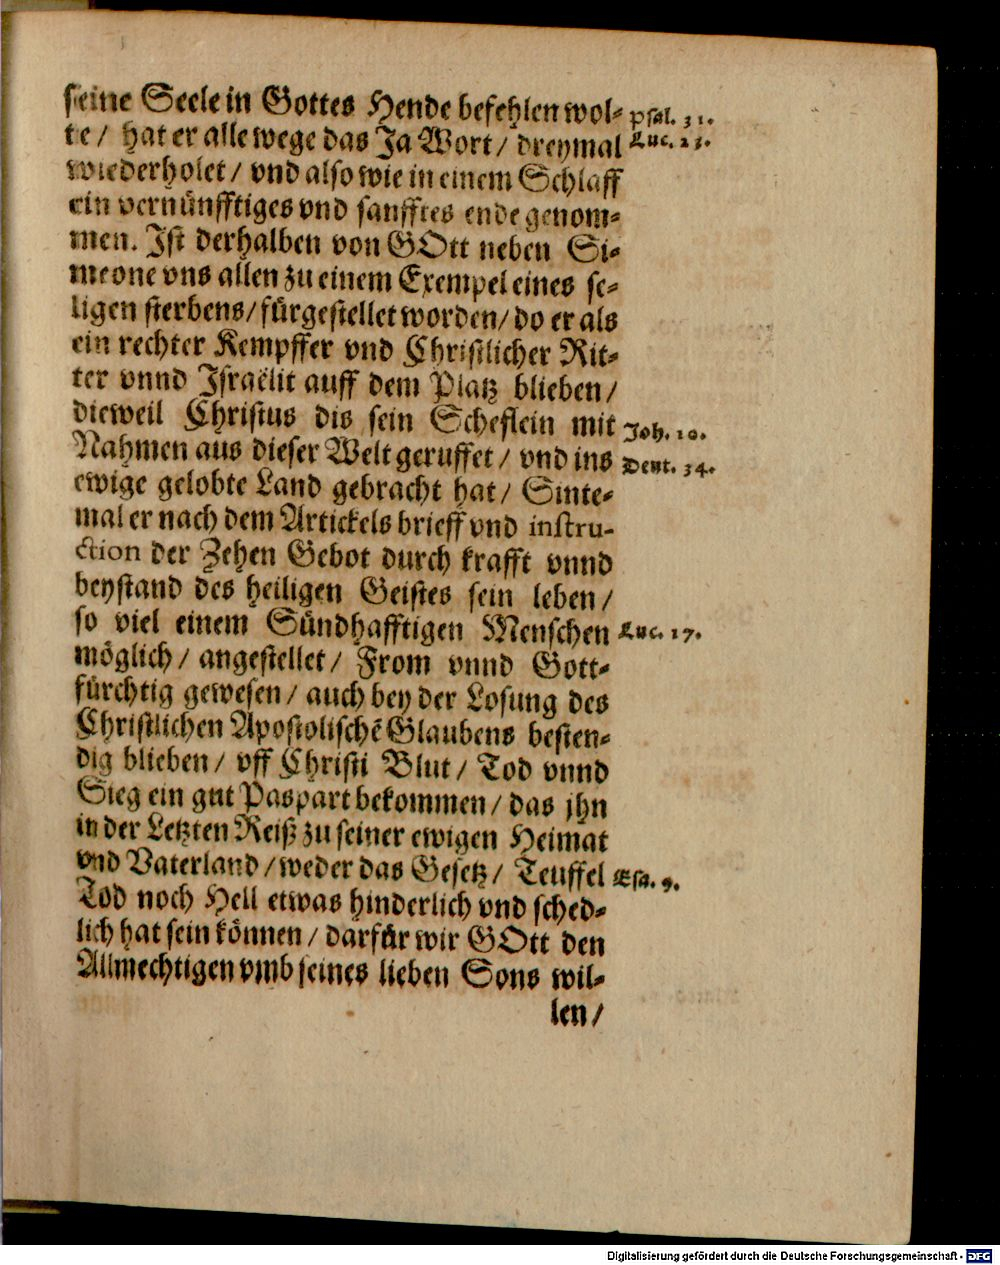 seine Seele in Gottes Hende befehlen wol- Psal. 31.
te / hat er alle wege das Ja Wort / dreymal Luc. 23.
wiederholet / vnd also wie in einem Schlaff
ein vernünfftiges vnd sanfftes ende genom-
men. Ist derhalben von GOtt neben Si-
meone vns allen zu einem Exempel eines se-
ligen sterbens / fürgestellet worden / do er als
ein rechter Kempffer vnd Christlicher Rit-
ter vnnd Israëlit auff dem Platz blieben /
dieweil Christus dis sein Scheflein mit Joh. 10.
Nahmen aus dieser Welt geruffet / vnd ins Deut. 34.
ewige gelobte Land gebracht hat / Sinte-
mal er nach dem Artickels brieff vnd instru-
ction der Zehen Gebot durch krafft vnnd
beystand des heiligen Geistes sein leben /
so viel einem Sündhafftigen Menschen Luc. 17.
möglich / angestellet / From vnnd Gott-
fürchtig gewesen / auch bey der Losung des
Christlichen Apostolischē Glaubens besten-
dig blieben / vff Christi Blut / Tod vnnd
Sieg ein gut Paspart bekommen / das jhn
in der Letzten Reiß zu seiner ewigen Heimat
vnd Vaterland / weder das Gesetz / Teuffel Esa. 9.
Tod noch Hell etwas hinderlich vnd sched-
lich hat sein können / darfür wir GOtt den
Allmechtigen vmb seines lieben Sons wil-
len /
Digitalisierung gefördert durch die Deutsche Forschungsgemeinschaft - DFG